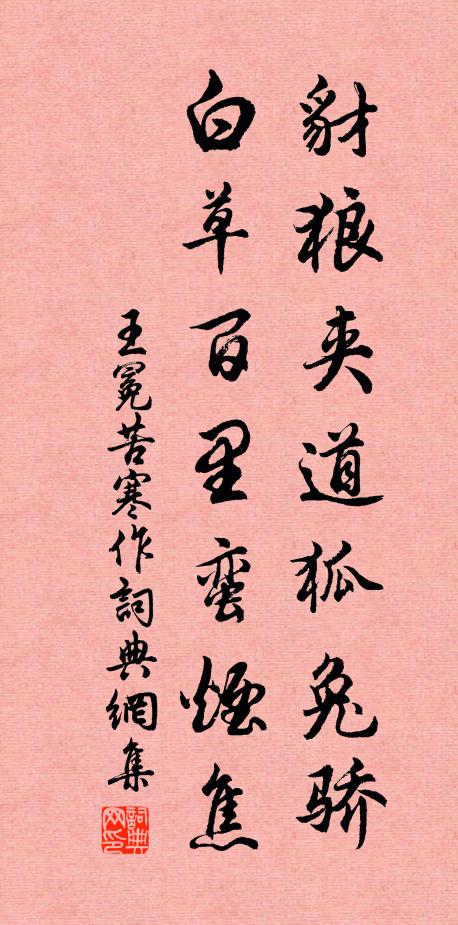 豺狼夹道狐兔骄
白草百里蛮烟焦
王冕苦寒作詞典網集
詞典网印